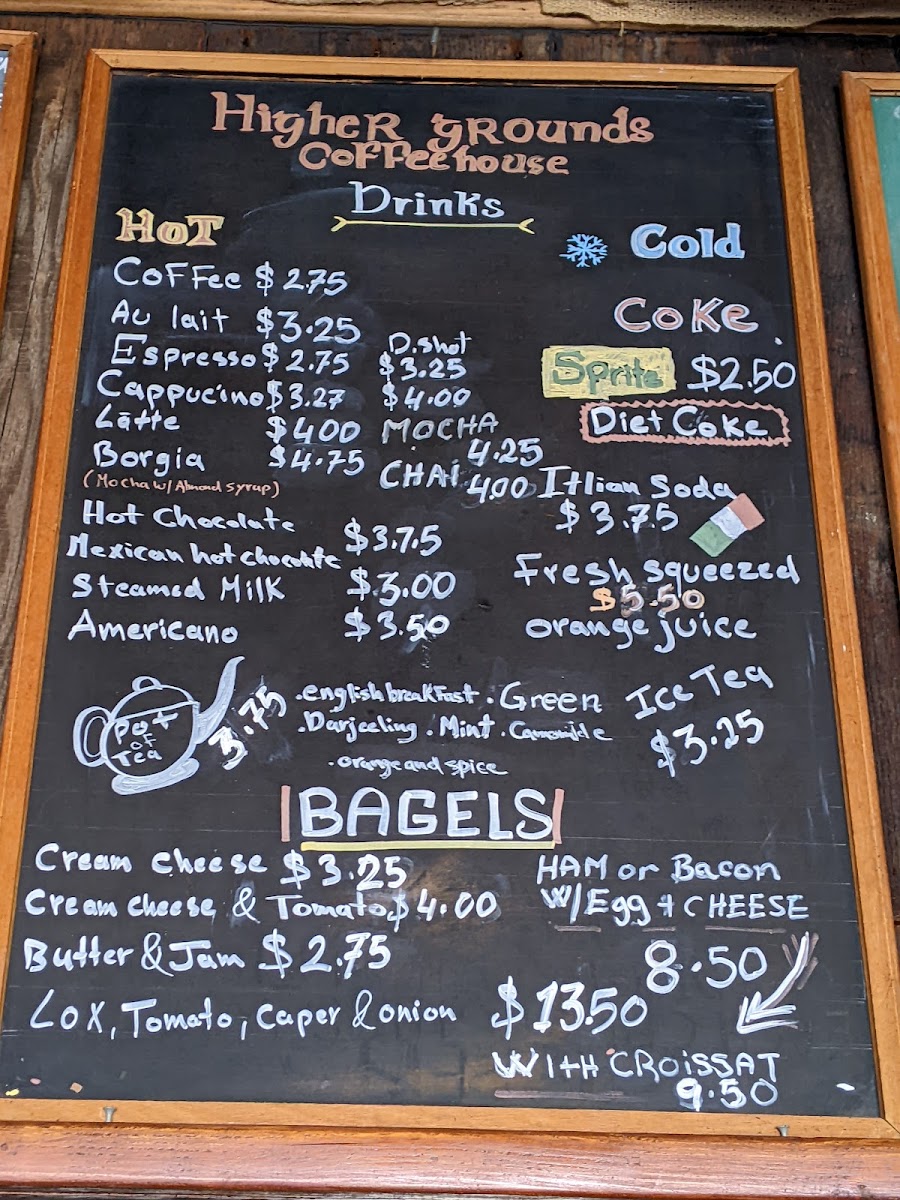 HigheR gRounds
Coffee house
Drinks
HoT
Cold
Coffee $2.75
Au lait $3.25
D.shot
Espresso $2.75 $3.25
Cappucino $3.27 $4.00
Lātte $4.00 MOCHA 4.25
Borgia $4.75 CHAI 4.00
(Mocha w/ Almond syrup)
Hot Chocolate
$3.75
Mexican hot chocolate
Steamed Milk $3.00
Americano $3.50
Coke
Sprite $2.50
Diet Coke
Itlian Soda
$3.75
Fresh squeezed
$5.50
orange juice
Ice Tea
$3.25
Pot
of
Tea
3.75
.english breakfast . Green
.Darjeeling . Mint . Camomile
.orange and spice
BAGELS
Cream cheese $3.25
Cream cheese & Tomato $4.00
Butter & Jam $2.75
Lox, Tomato, Caper & onion $13.50
HAM or Bacon
W/Egg + CHEESE
8.50
WITH CROiSSAT
9.50